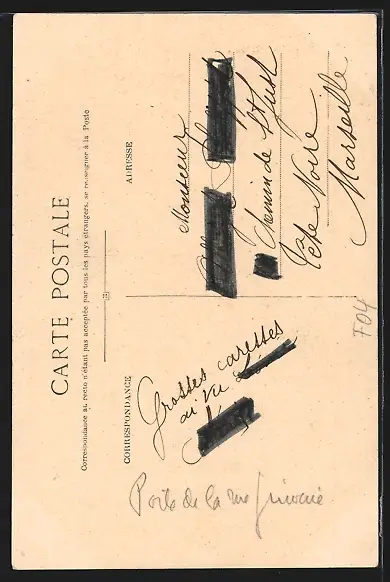 CARTE POSTALE
Correspondance au recto n'étant pas acceptée par tous les pays étrangers, se renseigner à la Poste
CORRESPONDANCE
Grosses caresses
ai vu
ADRESSE
Monsieur
Chemin de St Just
Tête Noire
Marseille
F04
de la rue